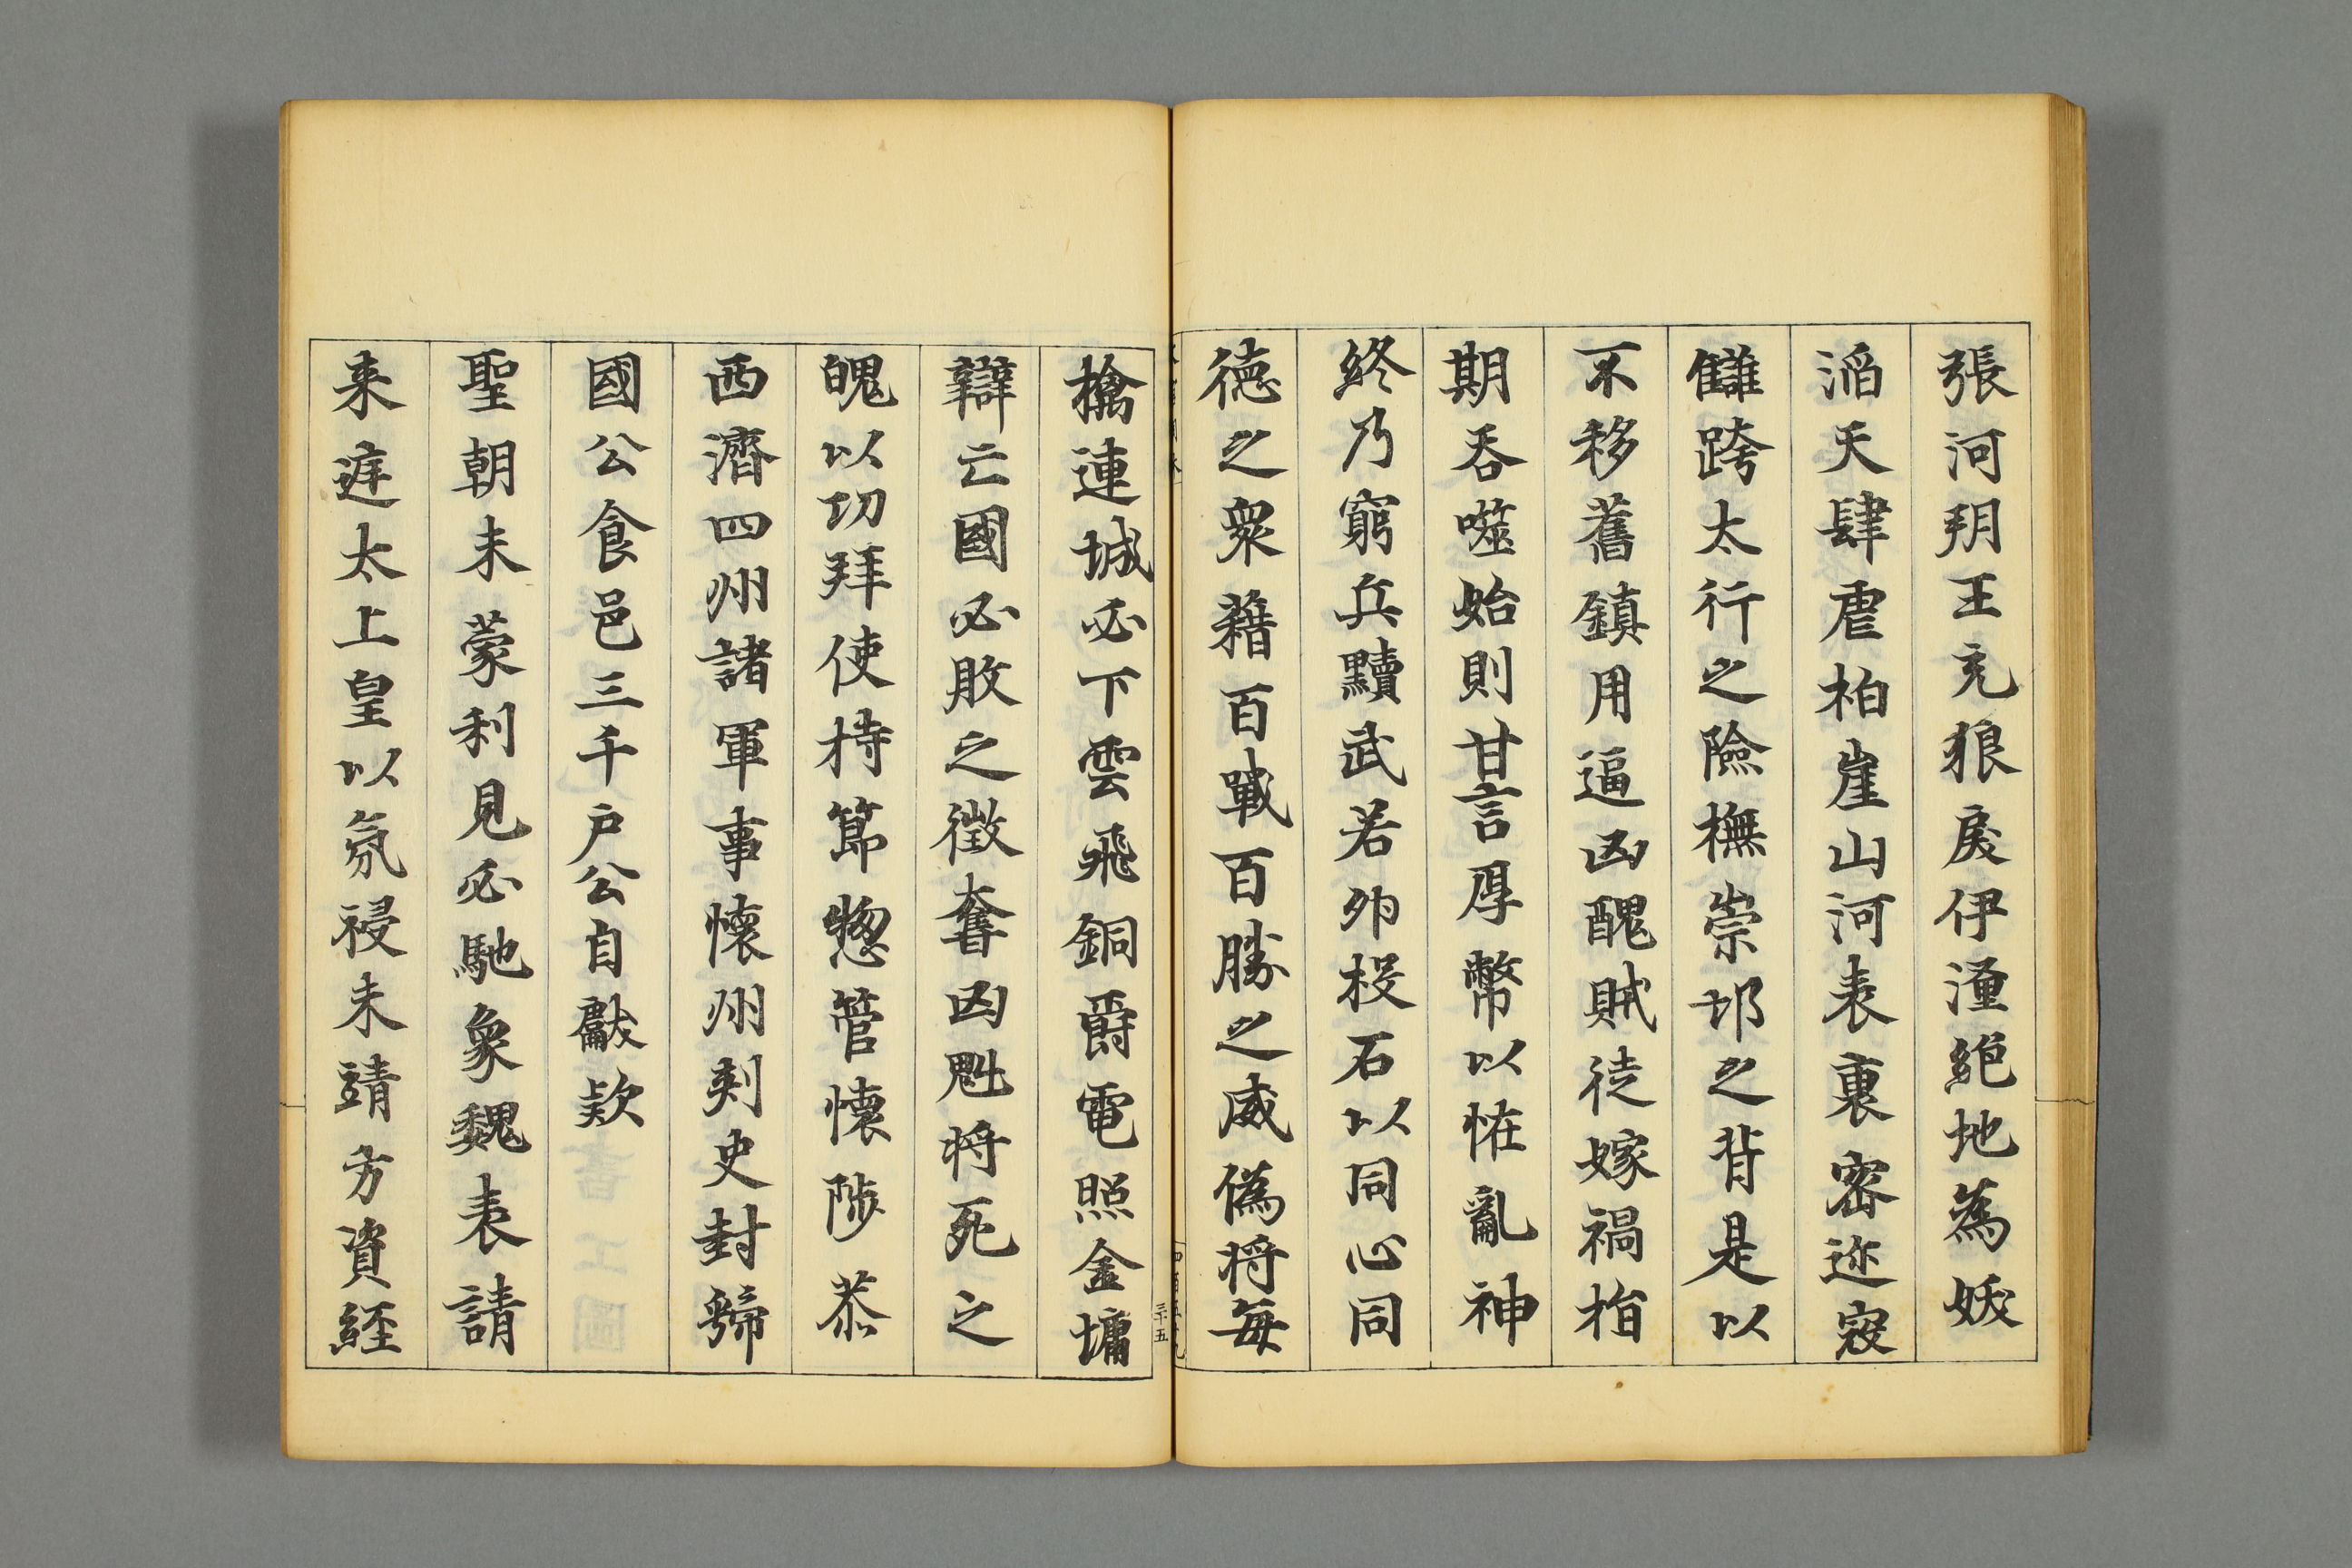 張河朔王充狼戾伊瀍絶地為妖
滔天肆虐柏崖山河表裏密迩寇
讎跨太行之險撫崇邙之背是以
不移舊鎮用逼凶醜賊徒嫁禍指
期吞噬始則甘言厚幣以怪亂神
終乃窮兵黷武若卵投石以同心同
徳之衆藉百戰百勝之威偽将每
擒連城必下雲飛銅爵電照金墉
辯亡國必敗之徵奪凶魁将死之
魄以功拜使持節惣管懐陟恭
西濟四州諸軍事懐州刾史封歸
國公食邑三千户公自獻欵
聖朝未蒙利見必馳象魏表請
来庭太上皇以氛祲未靖方資經
三十五